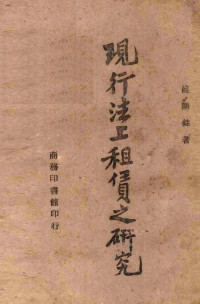 著
現行法上租賃之研究
商務印書館印行